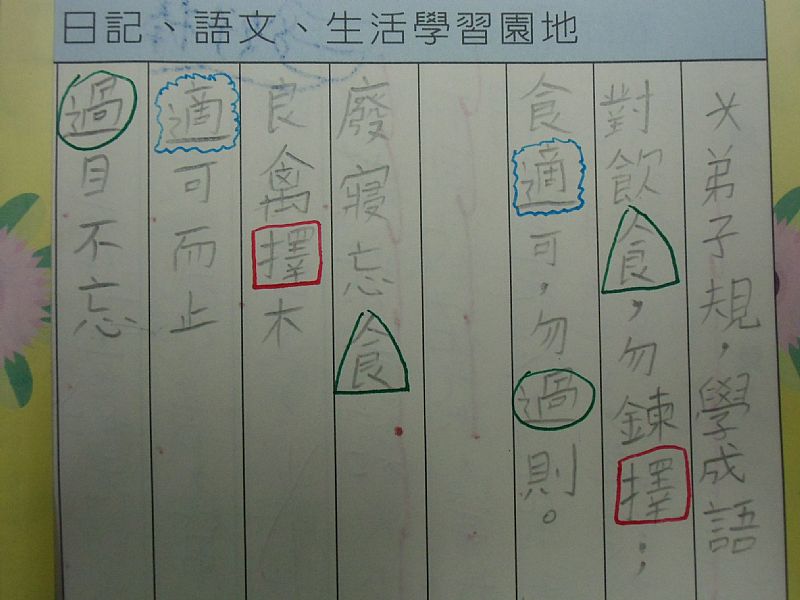 日記、語文、生活學習園地
乂弟子規，學成語
對飲食，勿鍊擇；
食適可，勿過則。
廢寢忘食
良禽擇木
適可而止
過目不忘